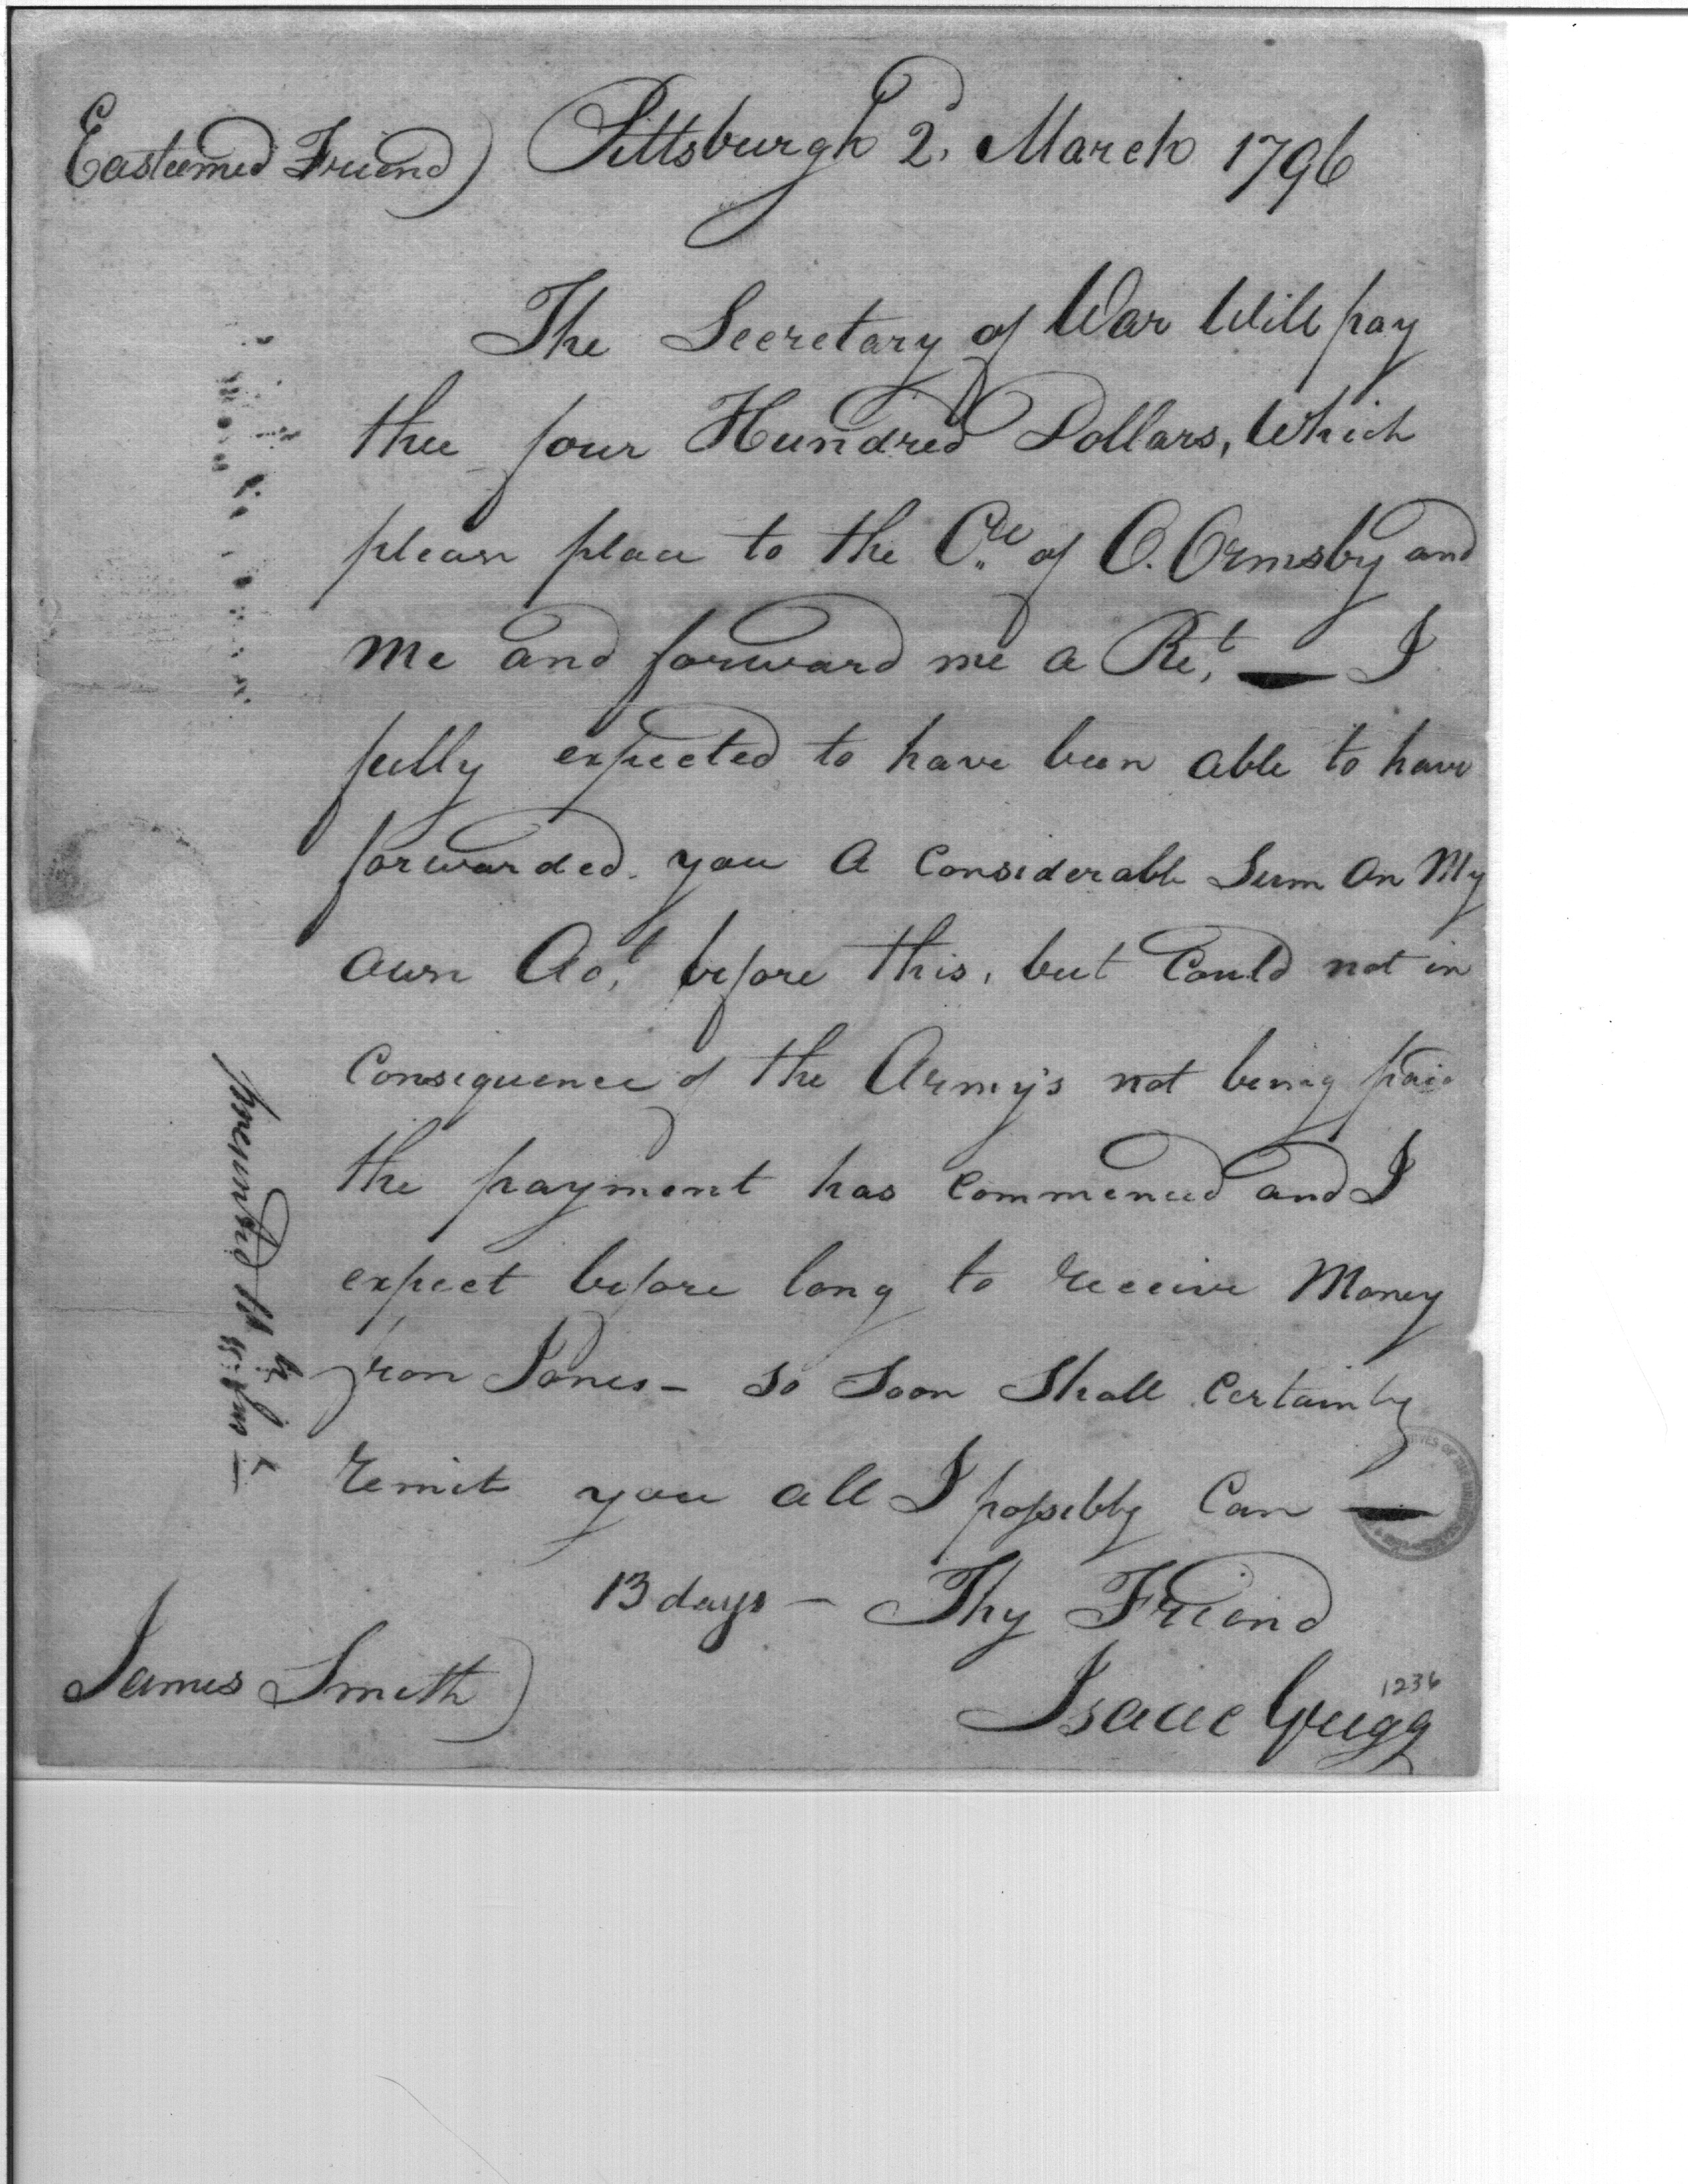 Easteemed Friend) Pittsburgh 2d. March 1796
The Secretary of War Will pay
thee four Hundred Dollars, Which
please place to the Cr. of O. Ormsby and
me and forward me a Ret, — I
fully expected to have been able to have
forwarded. you a Considerable Sum on My
own Aot, before this, but Could not in
Consequence of the Army's not being paid
the payment has Commenced and I
expect before long to receive Money
from Jones - so soon shall certainly
remit you all I possibly Can —
13 days — Thy Friend
James Smith) Isaac Gregg
1236